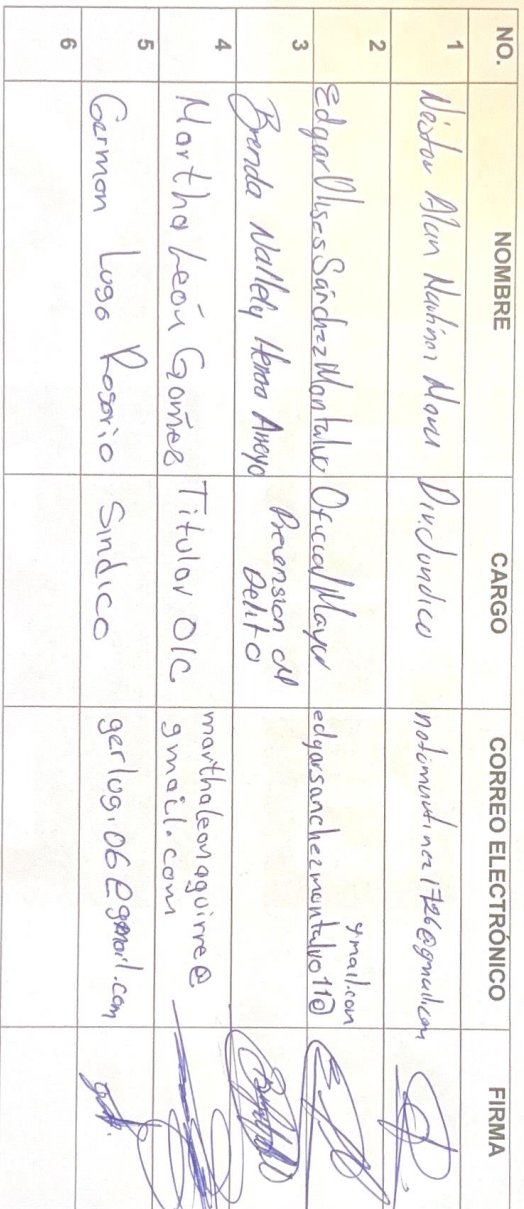 NO. NOMBRE CARGO CORREO ELECTRÓNICO FIRMA
1 Néstor Alan Dir. Jurídico
2 Edgar Ulises Sánchez Montalvo Oficial Mayor edgarsanchezmontalvo11@
gmail.com
3 Brenda Nallely Arroyo Prevension del
Delito
4 Martha León Gomes Titular OIC marthaleonaguirre@
gmail.com
5 German Lugo Rosario Sindico gerlugi06@gmail.com
6